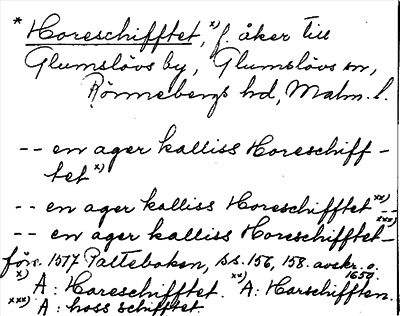 * Horeschifftet, x) f. åker till
Glumslövs by, Glumslövs sn,
Rönnebergs hd, Malm. l.
-- en ager kalliss Horeschiff-
tet x)
-- en ager kalliss Horeschifftet xx) --
-- en ager kalliss Horeschifftet xxx) -
före 1577 Palteboken, s.s. 156, 158. avskr. o. 1650.
x) A: Hareschifftet. xx) A: Harschifften.
xxx) A: hoss schifftet.